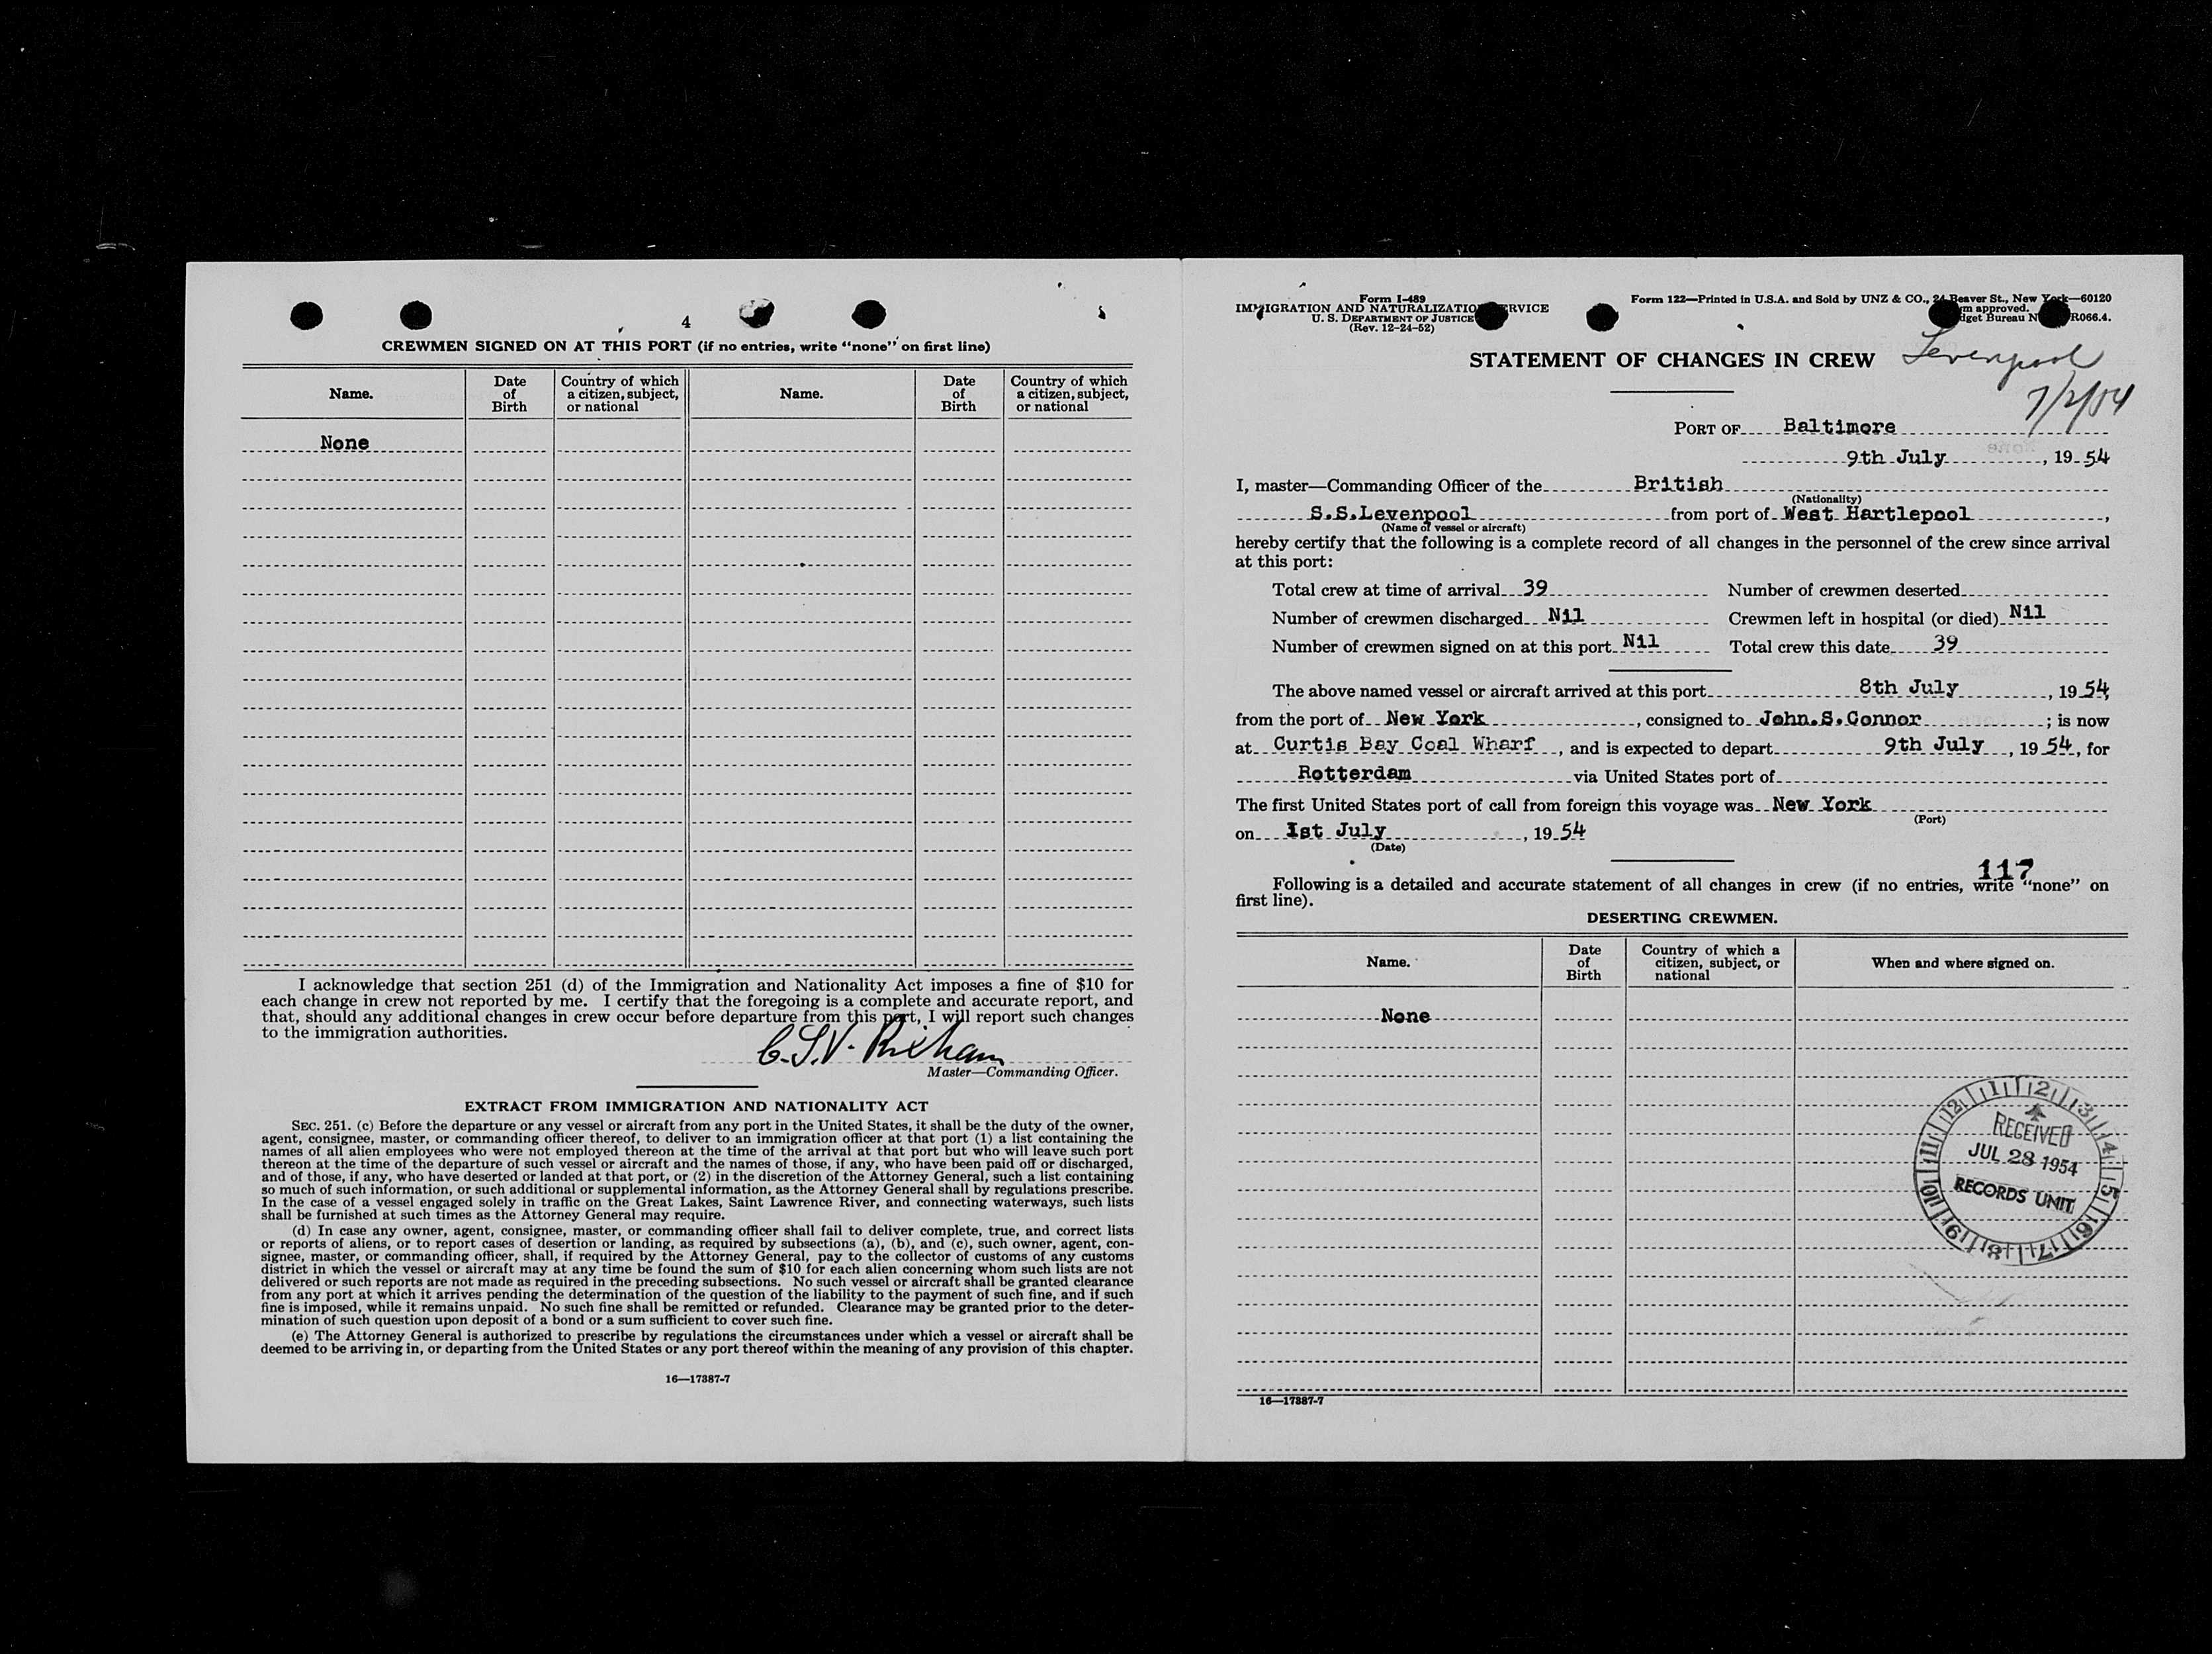 4
CREWMEN SIGNED ON AT THIS PORT (if no entries, write “none” on first line)
Name.
Date of Birth
Country of which a citizen, subject, or national
Name.
Date of Birth
Country of which a citizen, subject, or national
None
I acknowledge that section 251 (d) of the Immigration and Nationality Act imposes a fine of $10 for
each change in crew not reported by me. I certify that the foregoing is a complete and accurate report, and
that, should any additional changes in crew occur before departure from this port, I will report such changes
to the immigration authorities.
Master—Commanding Officer.
EXTRACT FROM IMMIGRATION AND NATIONALITY ACT
SEC. 251. (c) Before the departure or any vessel or aircraft from any port in the United States, it shall be the duty of the owner,
agent, consignee, master, or commanding officer thereof, to deliver to an immigration officer at that port (1) a list containing the
names of all alien employees who were not employed thereon at the time of the arrival at that port but who will leave such port
thereon at the time of the departure of such vessel or aircraft and the names of those, if any, who have been paid off or discharged,
and of those, if any, who have deserted or landed at that port, or (2) in the discretion of the Attorney General, such a list containing
so much of such information, or such additional or supplemental information, as the Attorney General shall by regulations prescribe.
In the case of a vessel engaged solely in traffic on the Great Lakes, Saint Lawrence River, and connecting waterways, such lists
shall be furnished at such times as the Attorney General may require.
(d) In case any owner, agent, consignee, master, or commanding officer shall fail to deliver complete, true, and correct lists
or reports of aliens, or to report cases of desertion or landing, as required by subsections (a), (b), and (c), such owner, agent, con-
signee, master, or commanding officer, shall, if required by the Attorney General, pay to the collector of customs of any customs
district in which the vessel or aircraft may at any time be found the sum of $10 for each alien concerning whom such lists are not
delivered or such reports are not made as required in the preceding subsections. No such vessel or aircraft shall be granted clearance
from any port at which it arrives pending the determination of the question of the liability to the payment of such fine, and if such
fine is imposed, while it remains unpaid. No such fine shall be remitted or refunded. Clearance may be granted prior to the deter-
mination of such question upon deposit of a bond or a sum sufficient to cover such fine.
(e) The Attorney General is authorized to prescribe by regulations the circumstances under which a vessel or aircraft shall be
deemed to be arriving in, or departing from the United States or any port thereof within the meaning of any provision of this chapter.
16—17387-7
Form I-489
IMMIGRATION AND NATURALIZATION SERVICE
U. S. DEPARTMENT OF JUSTICE
(Rev. 12-24-52)
Form 122—Printed in U.S.A. and Sold by UNZ & CO., 24 Beaver St., New York—60120
approved.
Bureau R066.4.
STATEMENT OF CHANGES IN CREW
Levenpool
7/2/54
PORT OF Baltimore
9th July, 19 54
I, master—Commanding Officer of the British
(Nationality)
S.S.Levenpool from port of West Hartlepool,
(Name of vessel or aircraft)
hereby certify that the following is a complete record of all changes in the personnel of the crew since arrival
at this port:
Total crew at time of arrival 39 Number of crewmen deserted
Number of crewmen discharged Nil Crewmen left in hospital (or died) Nil
Number of crewmen signed on at this port Nil Total crew this date 39
The above named vessel or aircraft arrived at this port 8th July, 19 54,
from the port of New York, consigned to John.S.Connor; is now
at Curtis Bay Coal Wharf, and is expected to depart 9th July, 19 54, for
Rotterdam via United States port of
The first United States port of call from foreign this voyage was New York
(Port)
on Ist July, 19 54
(Date)
117
Following is a detailed and accurate statement of all changes in crew (if no entries, write “none” on
first line).
DESERTING CREWMEN.
Name.
Date of Birth
Country of which a citizen, subject, or national
When and where signed on.
None
RECEIVED
JUL 28 1954
RECORDS UNIT
16—17387-7